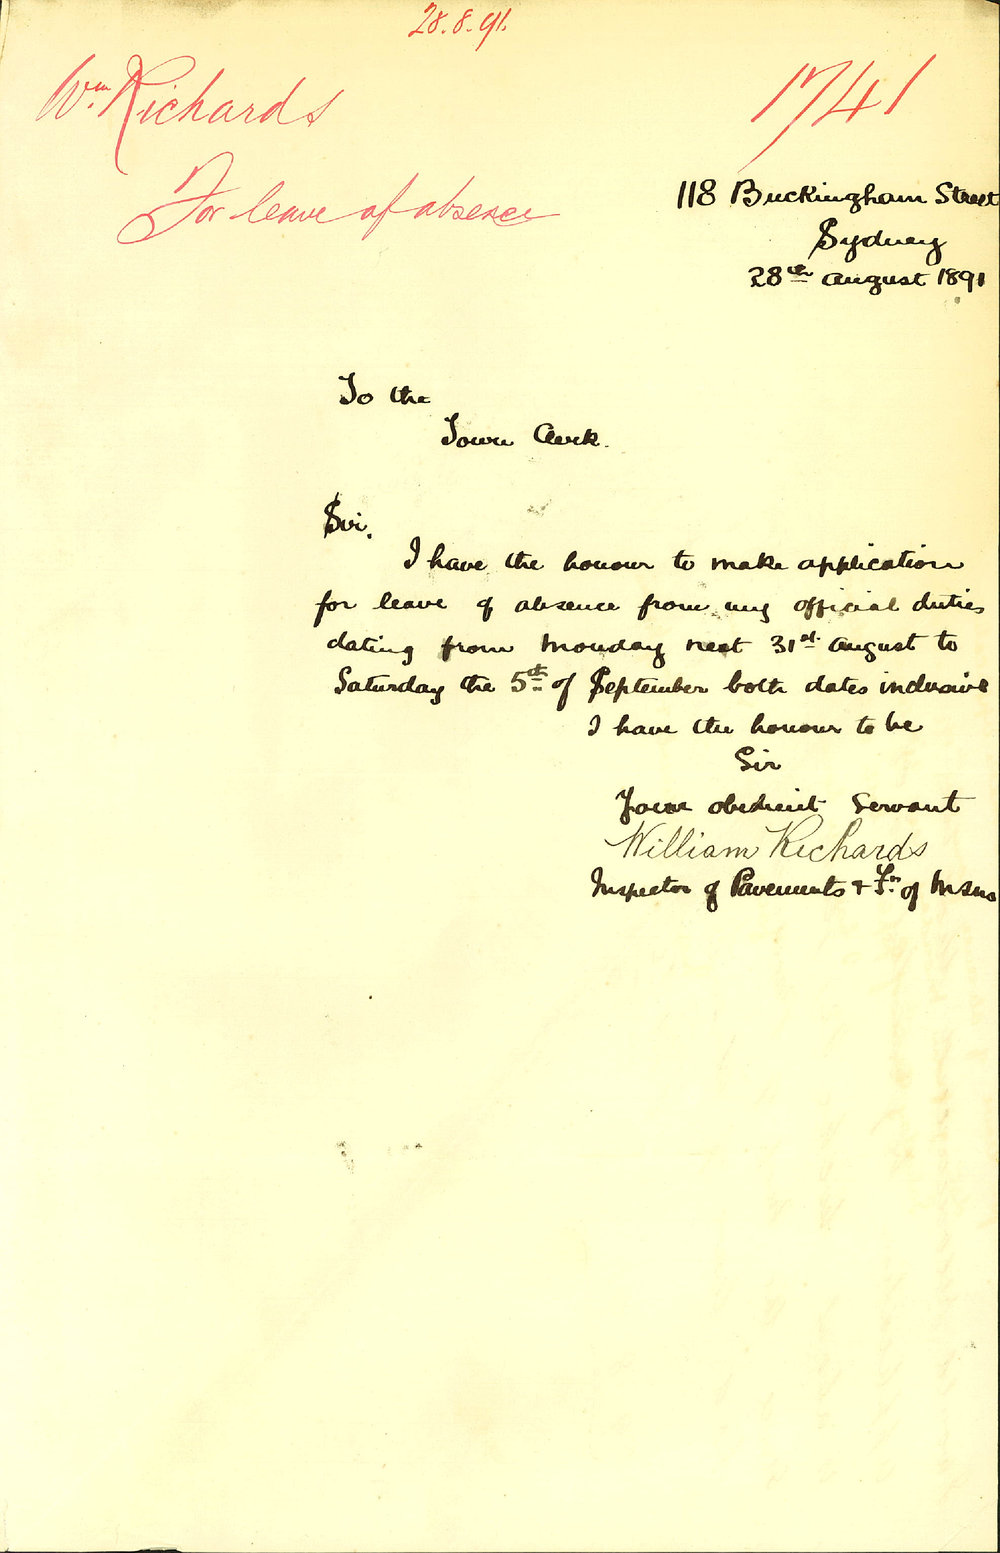 28.8.91.
Wm Richards
1741
For leave of absence
118 Buckingham Street
Sydney
28th August 1891
To the
Town Clerk.
Sir,
I have the honour to make application
for leave of absence from my official duties
dating from Monday next 31st August to
Saturday the 5th of September both dates inclusive
I have the honour to be
Sir
Your obedient Servant
William Richards
Inspector of Pavements & Fn. of